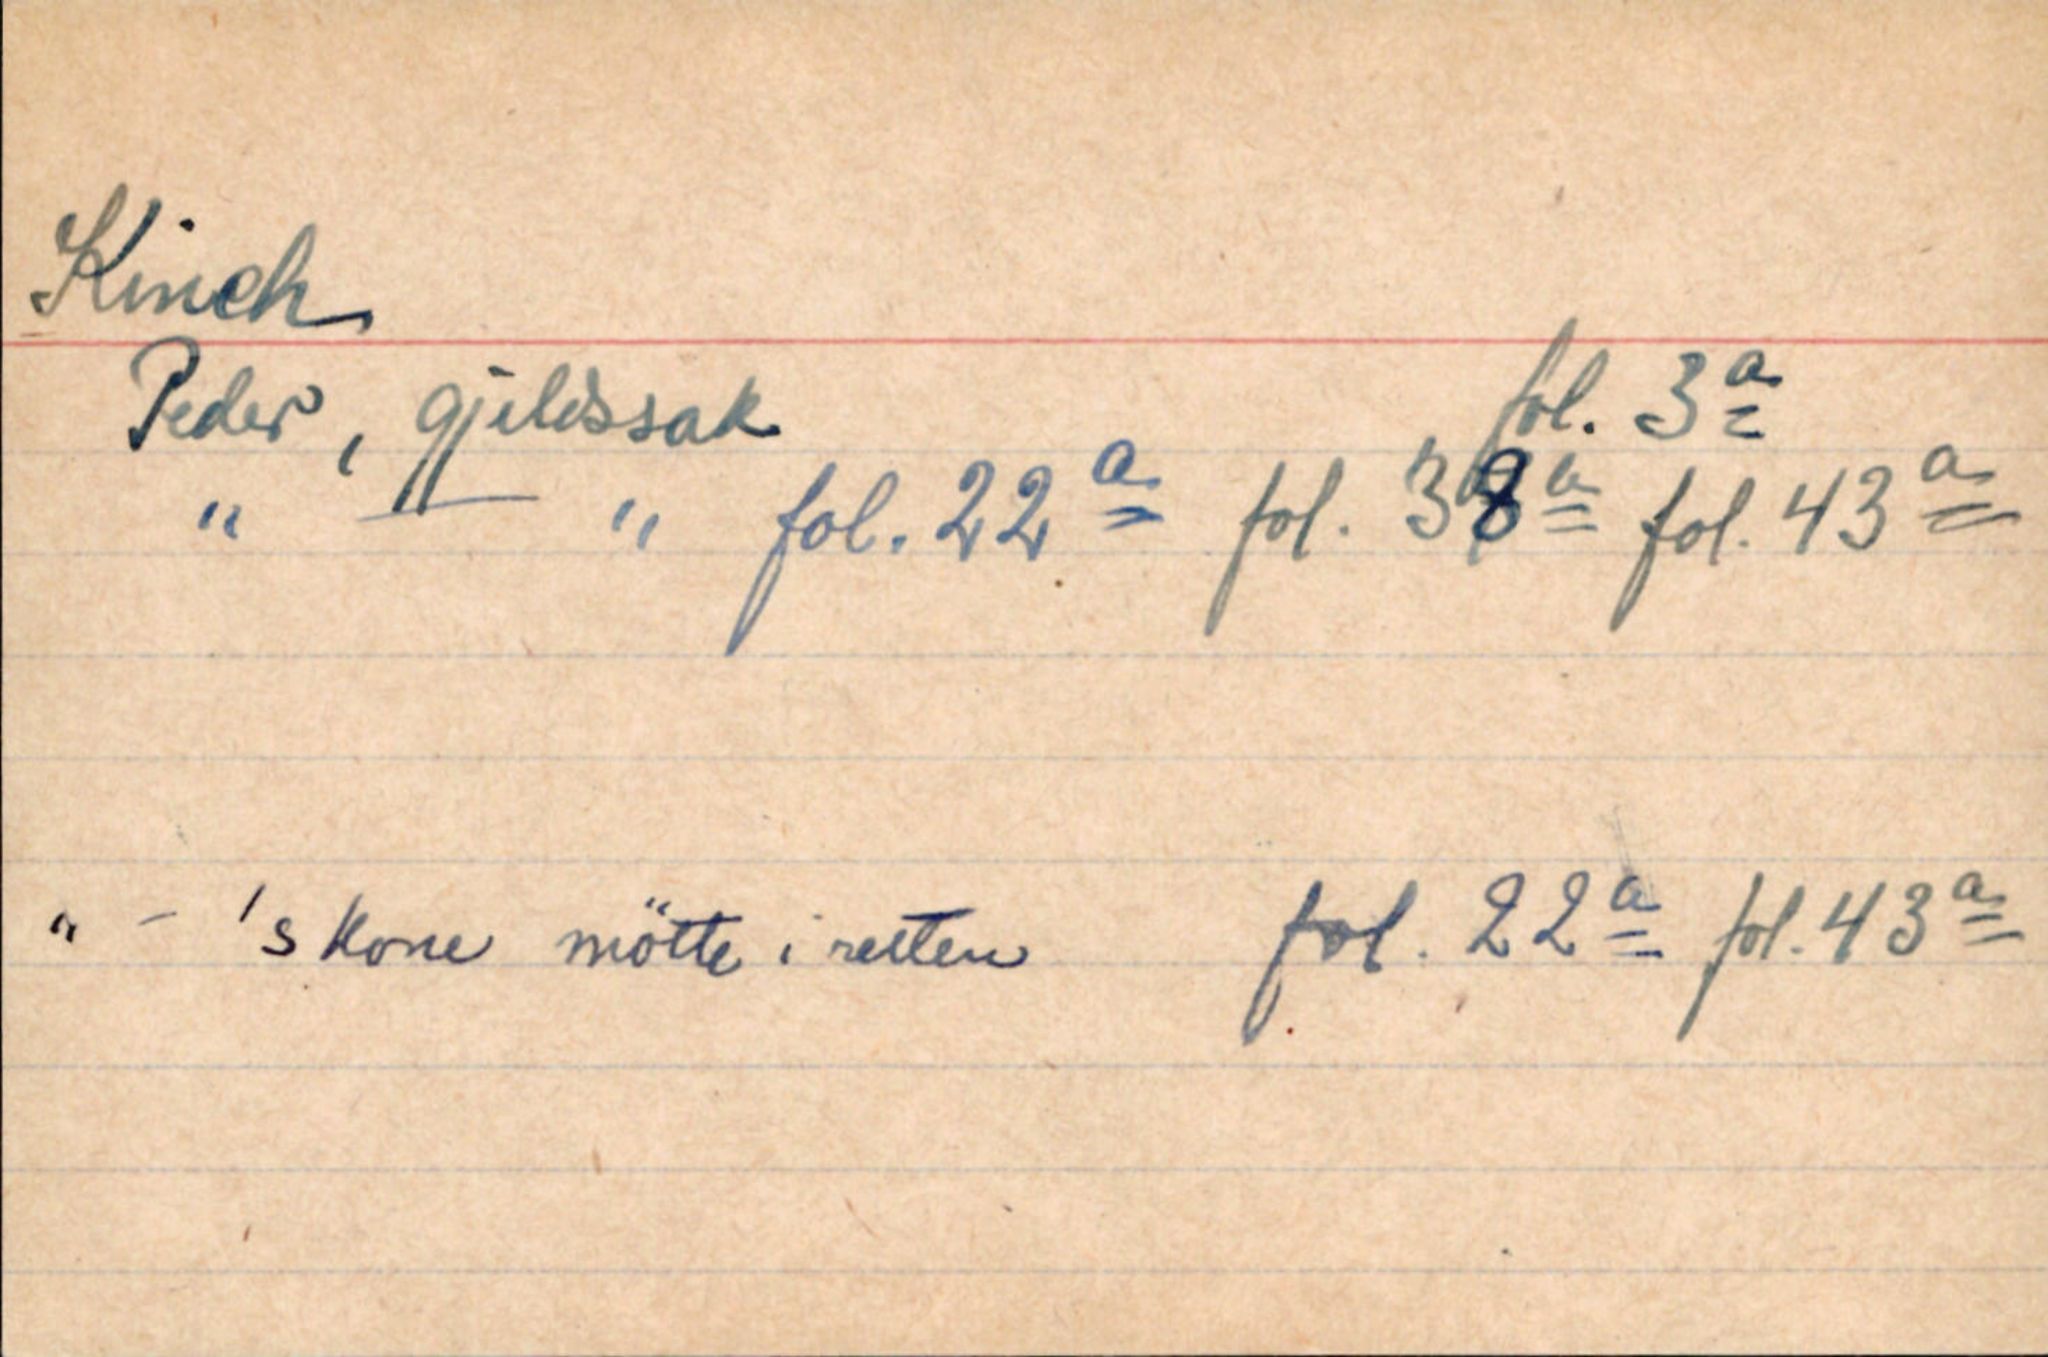 Kinch
Peder, gjeldssak fol. 3a
" — " fol. 22a fol. 38a fol. 43a
" - 's kone mötte i retten fol. 22a fol. 43a